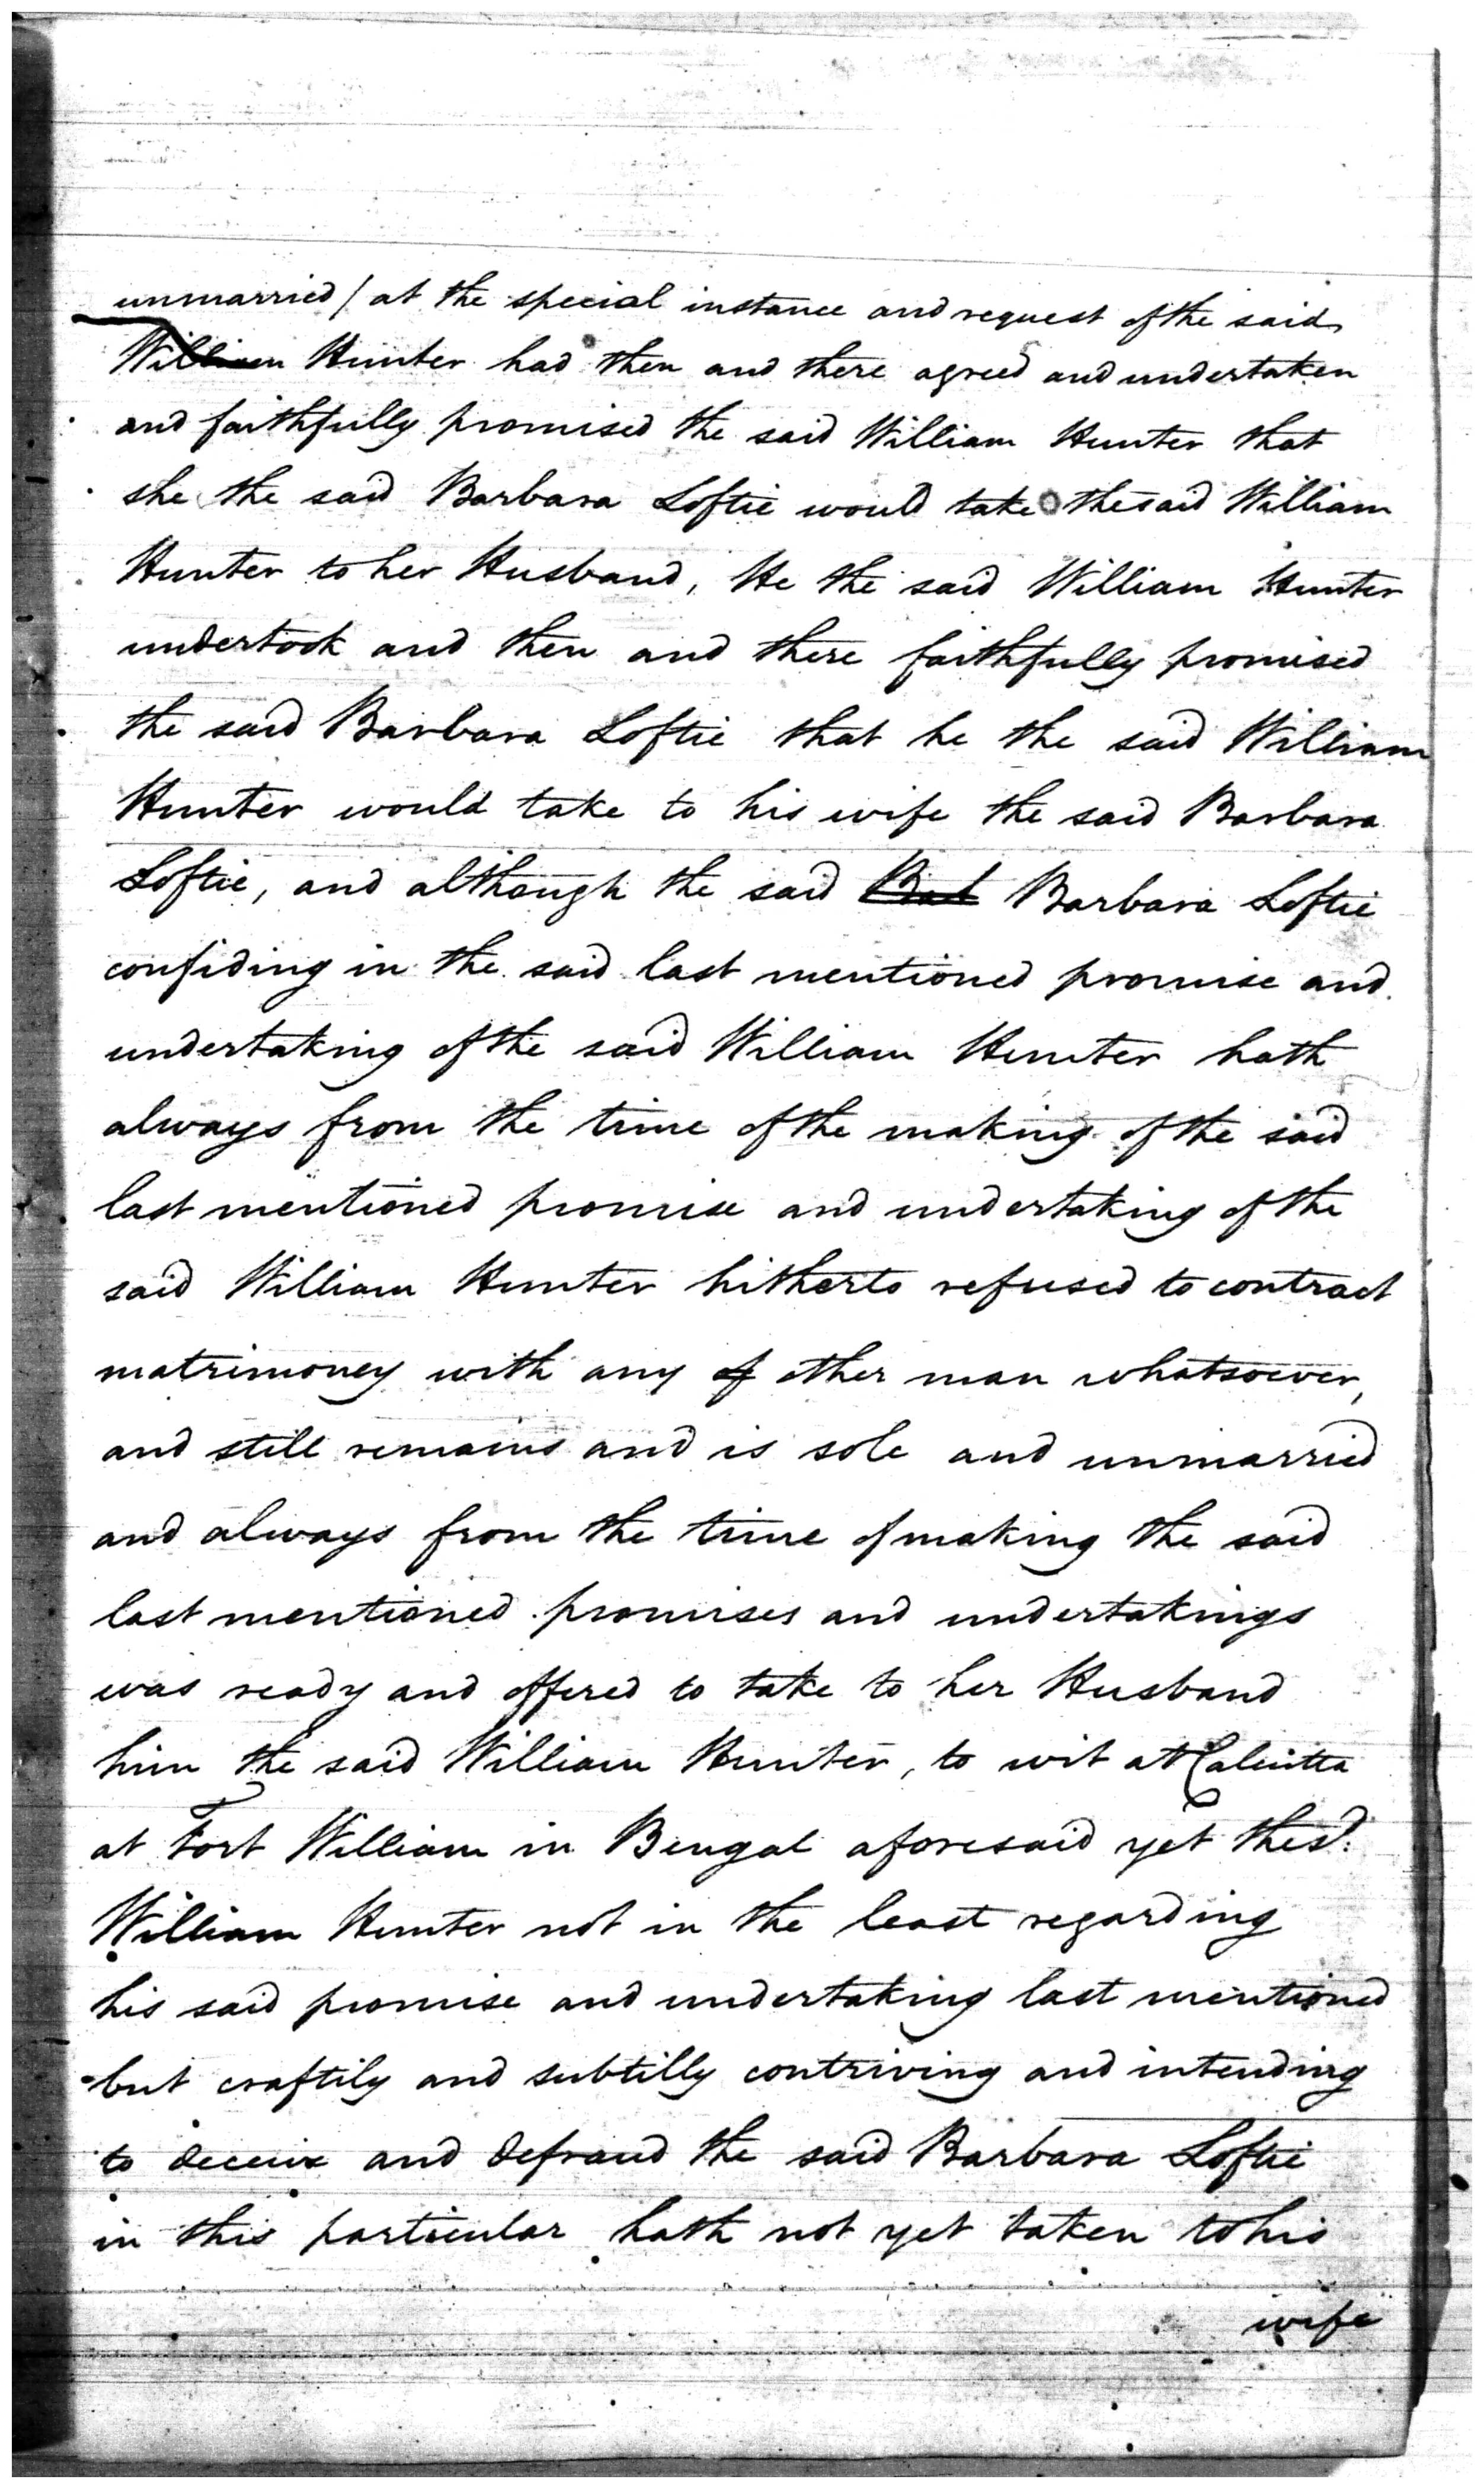 unmarried / at the special instance and request of the said
William Hunter had then and there agreed and undertaken
and faithfully promised the said William Hunter that
she the said Barbara Loftie would take the said William
Hunter to her Husband, He the said William Hunter
undertook and then and there faithfully promised
the said Barbara Loftie that he the said William
Hunter would take to his wife the said Barbara
Loftie, and although the said Barbara Loftie
confiding in the said last mentioned promise and
undertaking of the said William Hunter hath
always from the time of the making of the said
last mentioned promise and undertaking of the
said William Hunter hitherto refused to contract
matrimoney with any of other man whatsoever,
and still remains and is sole and unmarried
and always from the time of making the said
last mentioned promises and undertakings
was ready and offered to take to her Husband
him the said William Hunter, to wit at Calcutta
at Fort William in Bengal aforesaid yet the sd.
William Hunter not in the least regarding
his said promise and undertaking last mentioned
but craftily and subtilly contriving and intending
to deceive and defraud the said Barbara Loftie
in this particular hath not yet taken to his
wife